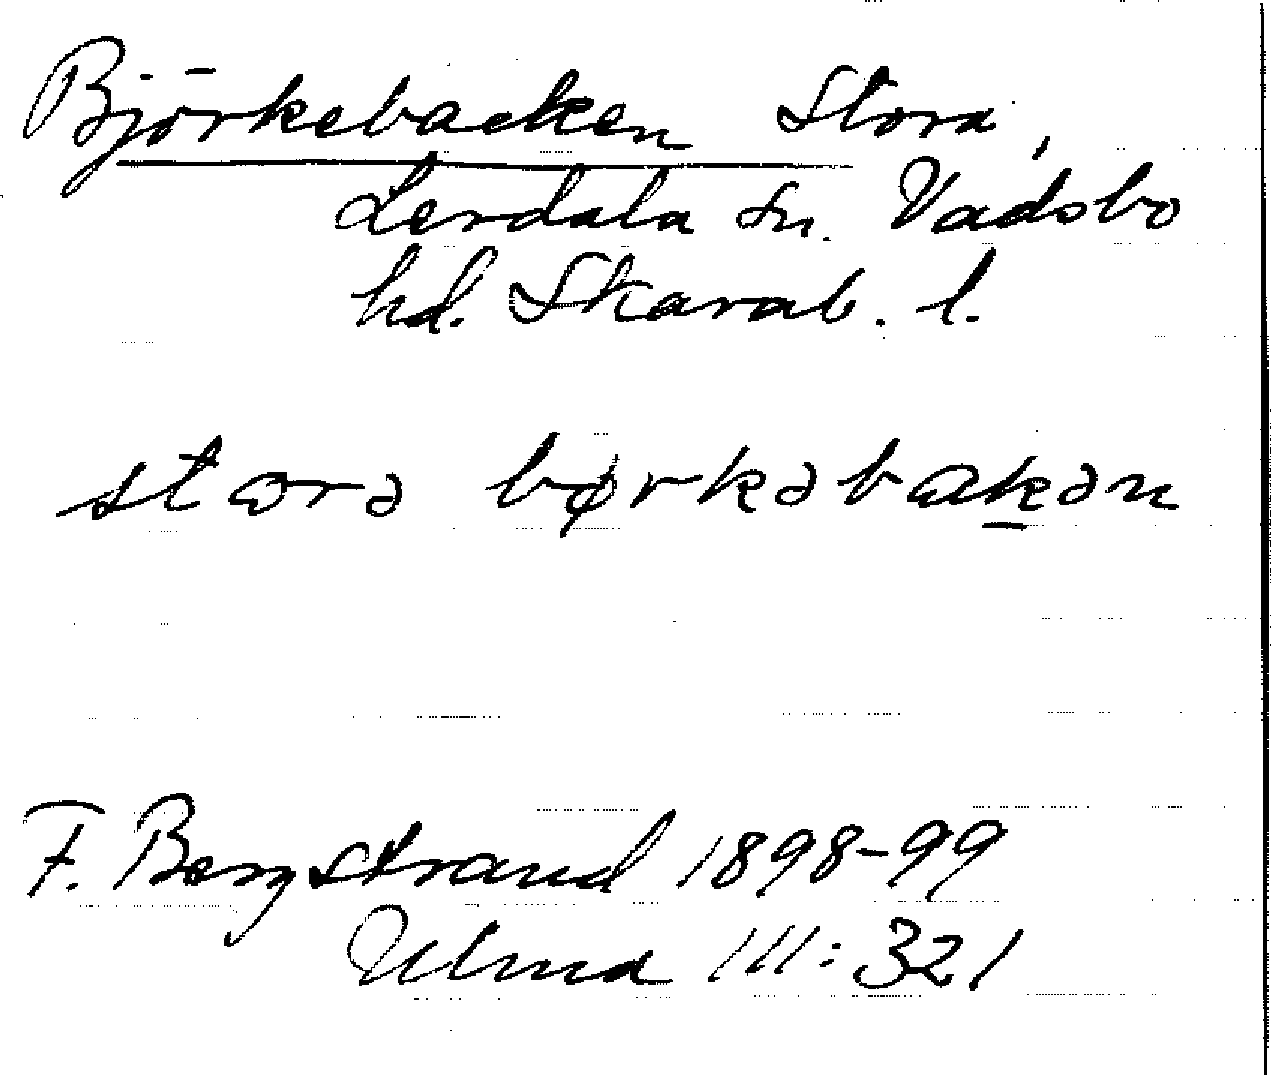 Björkebacken Stora,
Lerdala sn. Vadsbo
hd. Skarab. l.
stωrə børkəbakən
F. Bergstrand 1898-99
Ulma 111:321